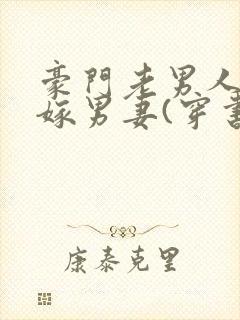 豪門老男人
嫁男妻(穿書
康泰克里